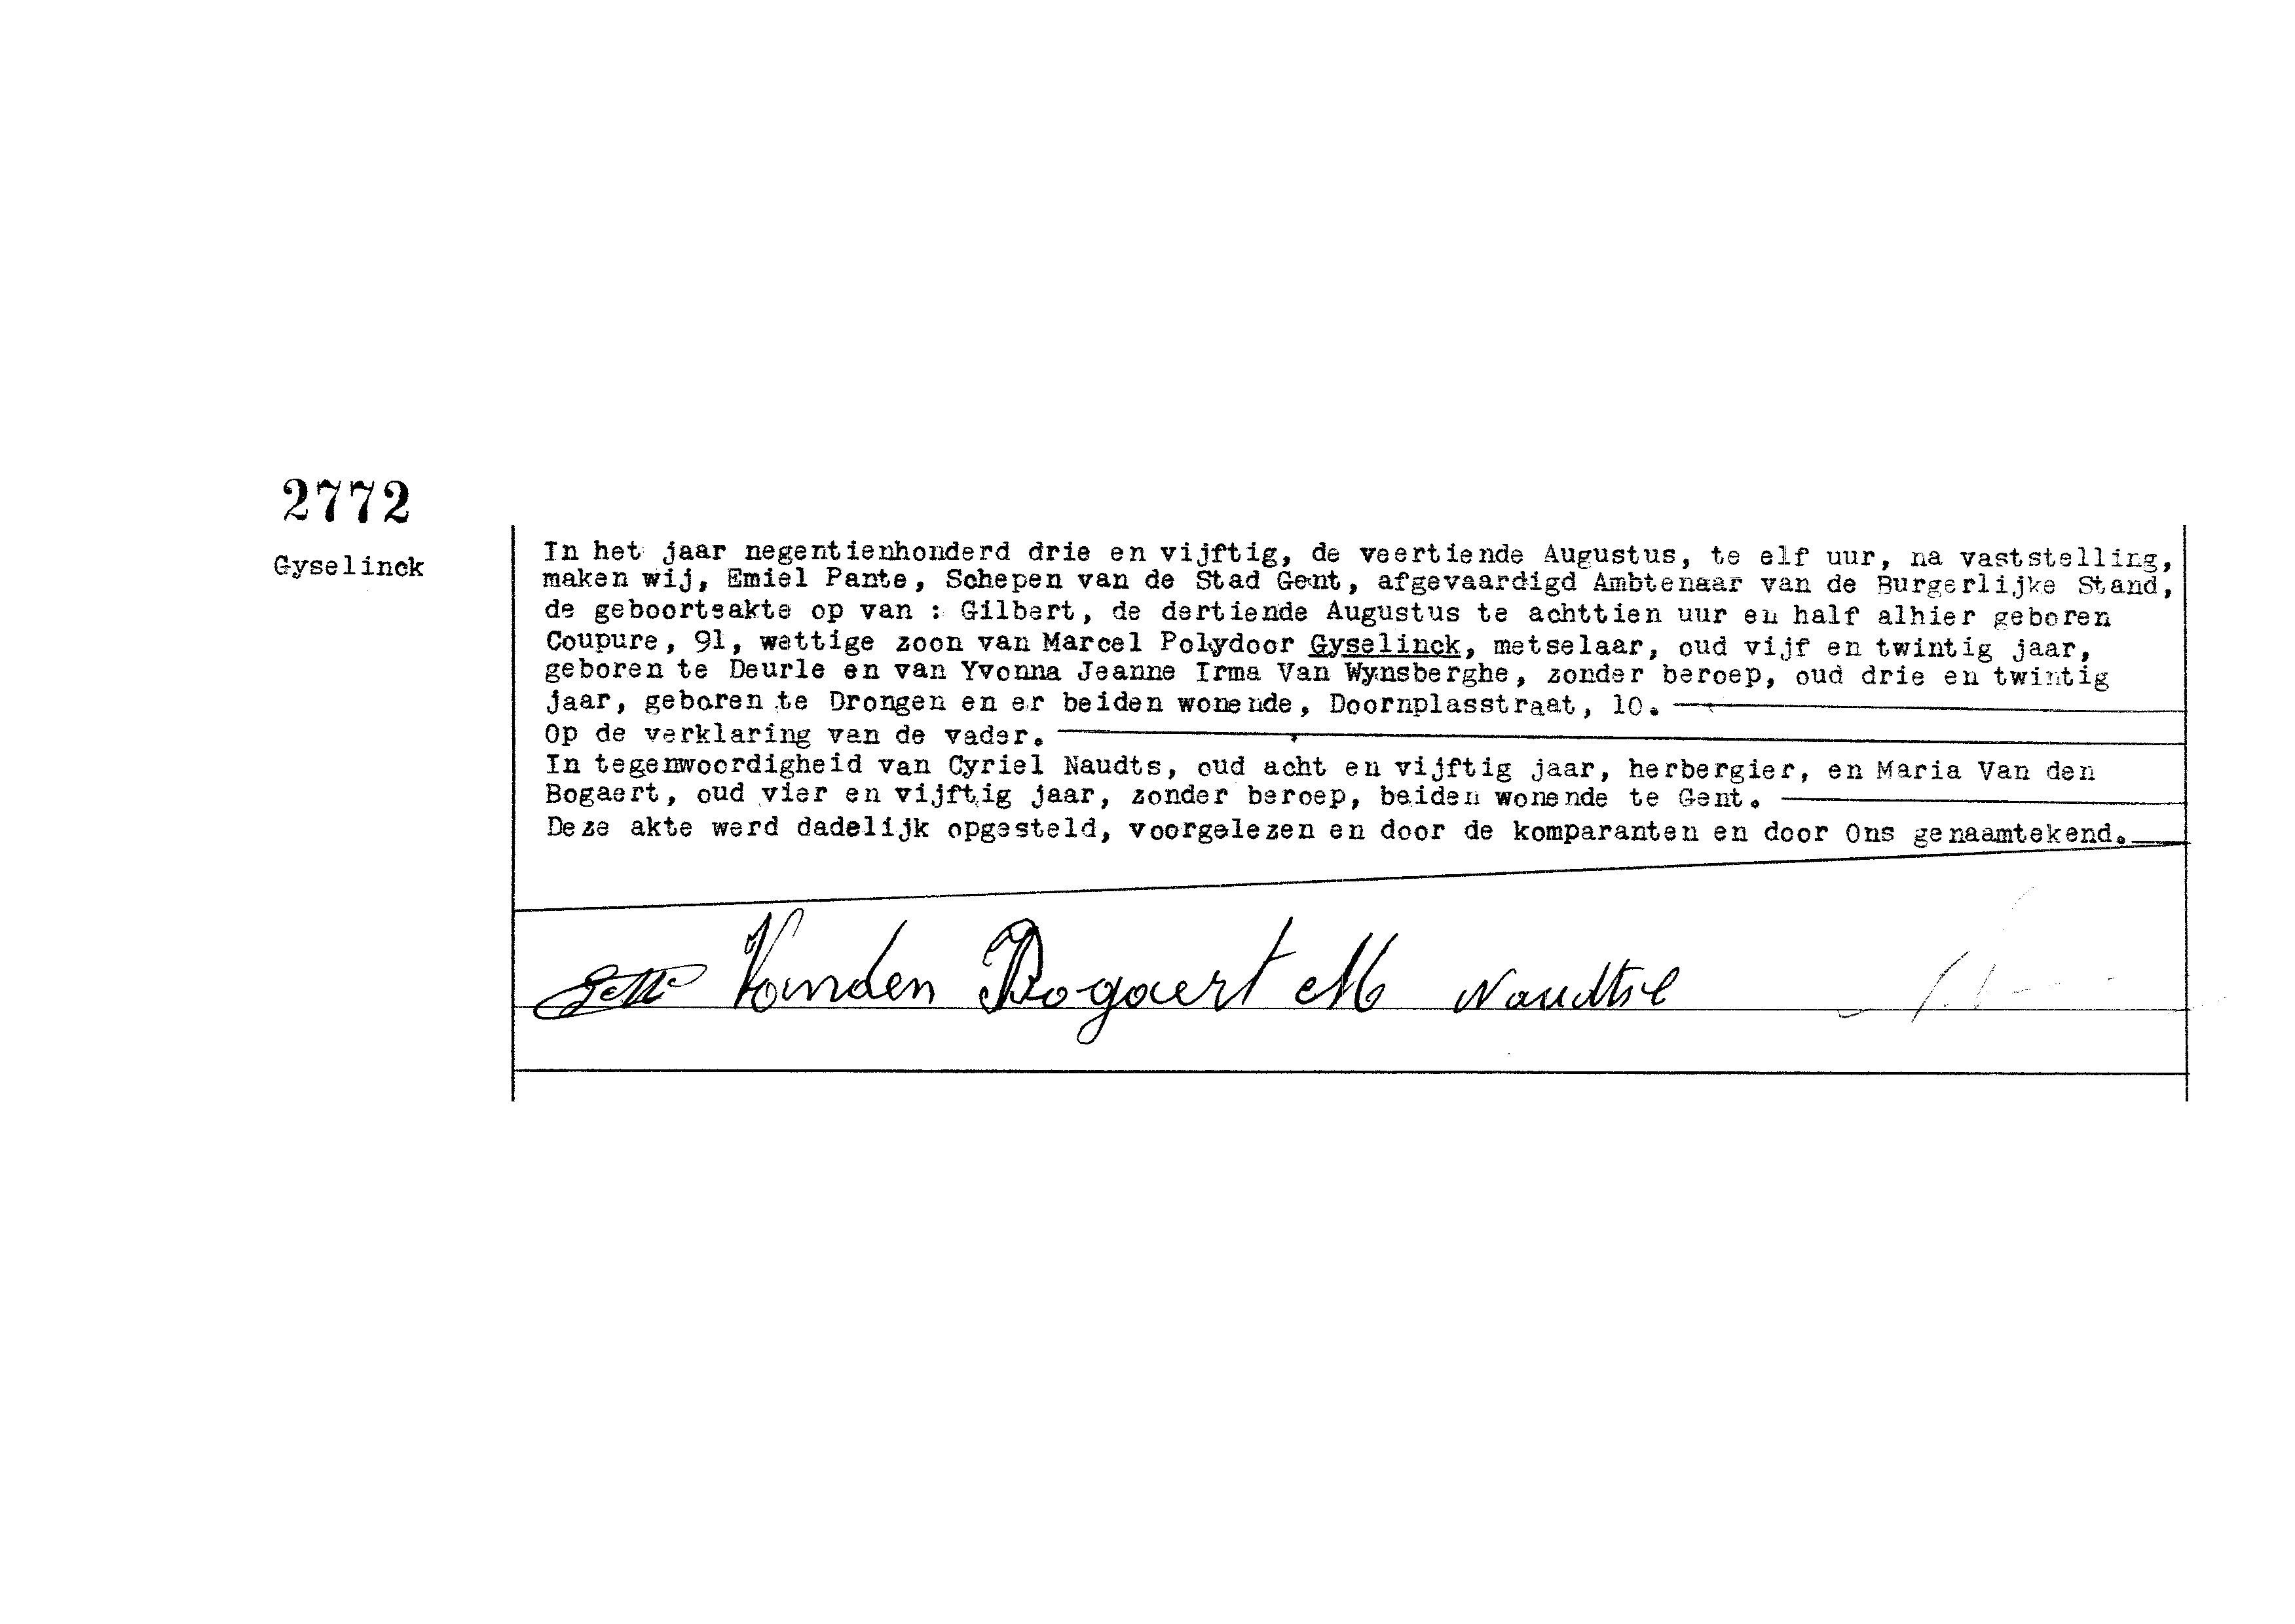 2772
Gyselinck
In het jaar negentienhonderd drie en vijftig, de veertiende Augustus, te elf uur, na vaststelling,
maken wij, Emiel Pante, Schepen van de Stad Gent, afgevaardigd Ambtenaar van de Burgerlijke Stand,
de geboorteakte op van : Gilbert, de dertiende Augustus te achttien uur en half alhier geboren
Coupure, 91, wettige zoon van Marcel Polydoor Gyselinck, metselaar, oud vijf en twintig jaar,
geboren te Deurle en van Yvonna Jeanne Irma Van Wynsberghe, zonder beroep, oud drie en twintig
jaar, geboren te Drongen en er beiden wonende, Doornplasstraat, 10.
Op de verklaring van de vader.
In tegenwoordigheid van Cyriel Naudts, oud acht en vijftig jaar, herbergier, en Maria Van den
Bogaert, oud vier en vijftig jaar, zonder beroep, beiden wonende te Gent.
Deze akte werd dadelijk opgesteld, voorgelezen en door de komparanten en door Ons genaamtekend.
Vanden Bogaert M Naudts C